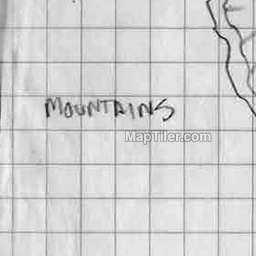 MOUNTAINS
MapTiler.com